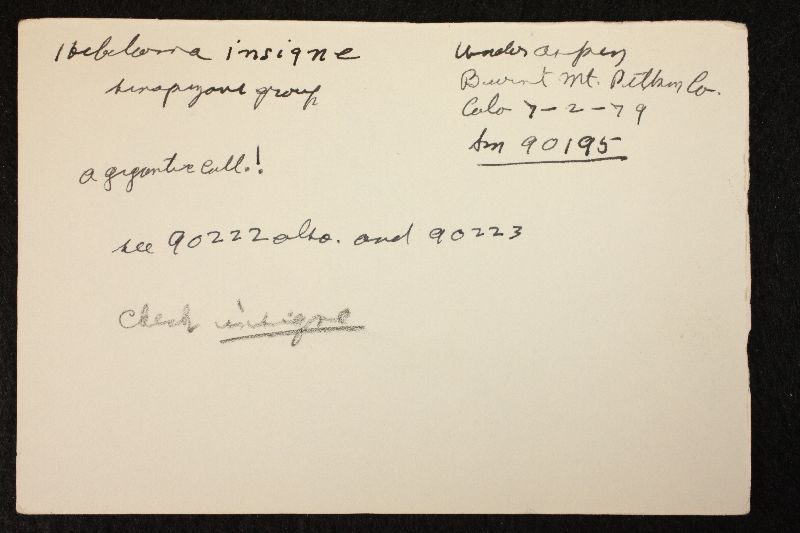 Hebeloma insigne
sinapizans group
under aspen
Burnt Mt. Pitkin Co.
Colo 7-2-79
Sm 90195
a gigantic coll.!
see 90222 also. and 90223
Check insigne